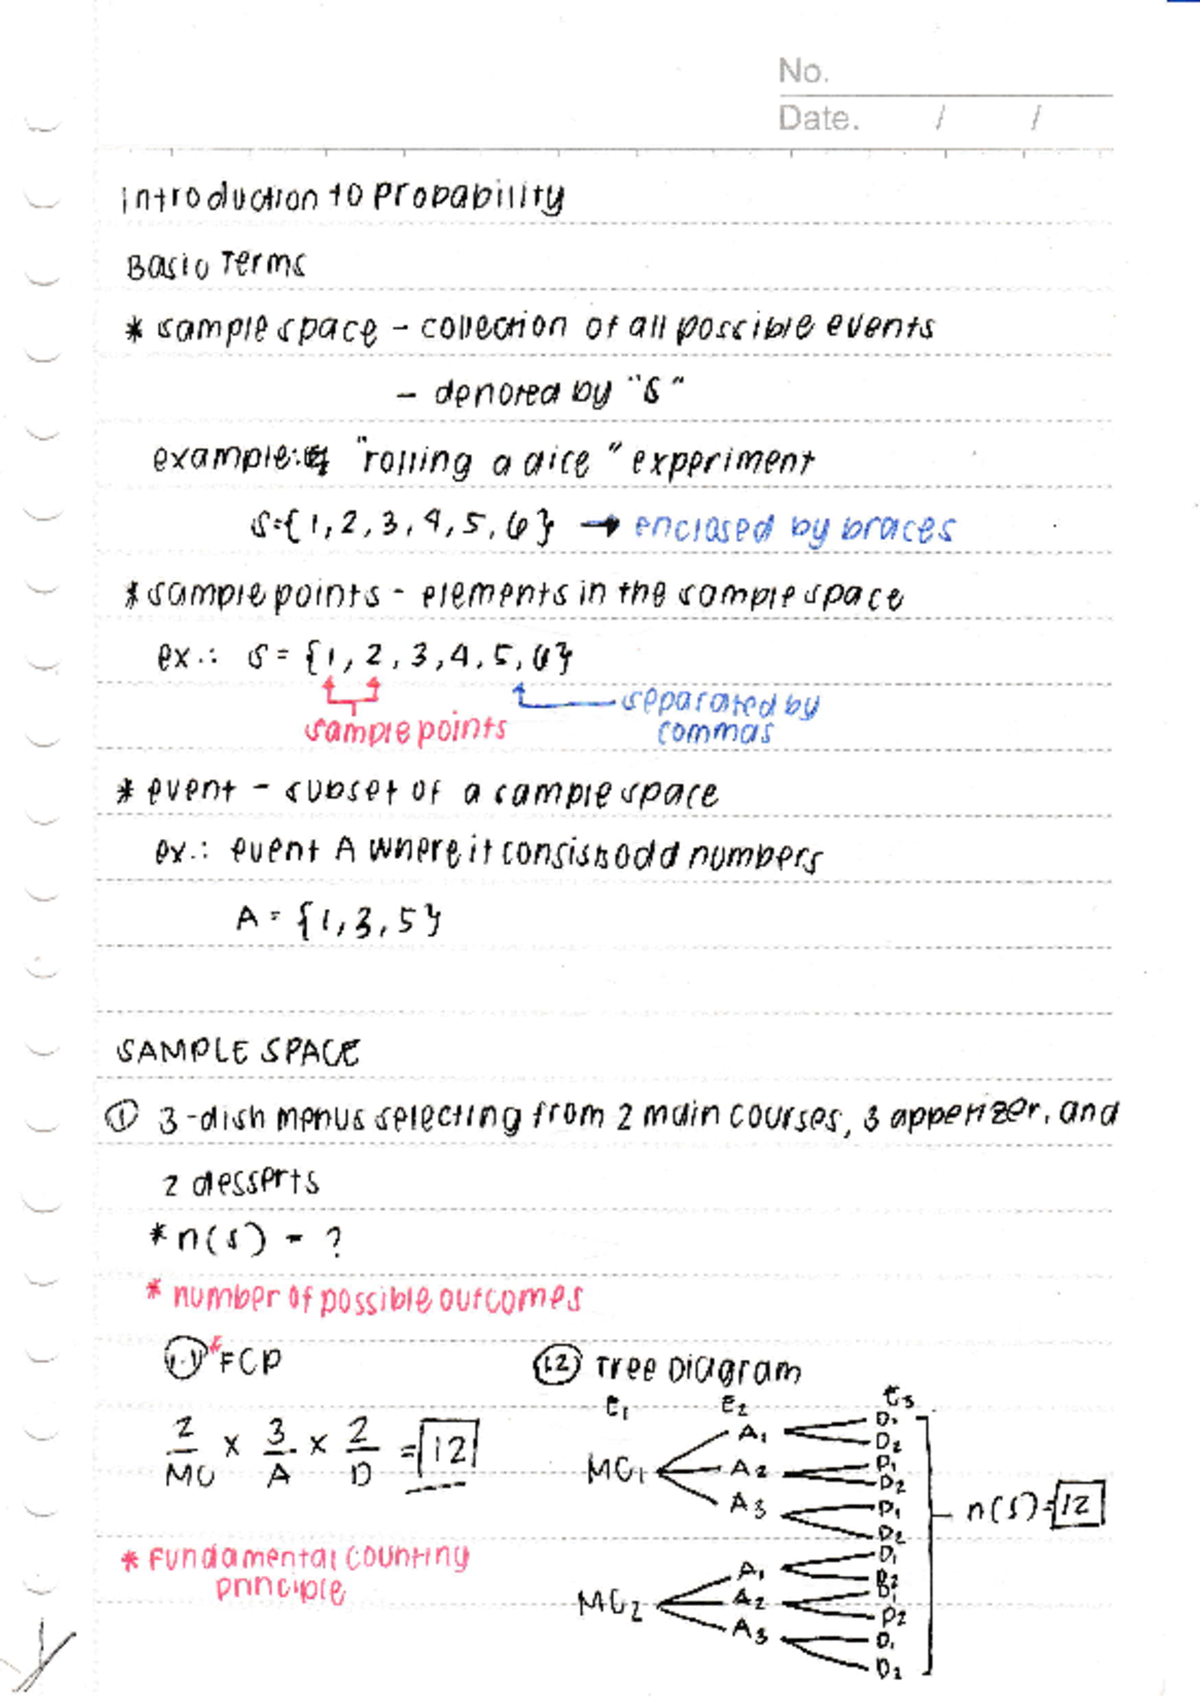 No.
Date. / /
introduction to probability
Basic Terms
* sample space - collection of all possible events
- denoted by "S"
example: "rolling a dice" experiment
S={1, 2, 3, 4, 5, 6} → enclosed by braces
* sample points - elements in the sample space
ex.: S = {1, 2, 3, 4, 5, 6}
sample points
separated by
commas
* event - subset of a sample space
ex.: event A where it consists odd numbers
A = {1, 3, 5}
SAMPLE SPACE
① 3-dish menus selecting from 2 main courses, 3 appetizer, and
2 desserts
* n(S) = ?
* number of possible outcomes
1.1 * FCP
1.2 Tree Diagram
2/MC x 3/A x 2/D = 12
* Fundamental counting
principle
E₁ E₂ E₃
MC₁
A₁ D₁
D₂
A₂ D₁
D₂
A₃ D₁
D₂
MC₂
A₁ D₁
D₂
A₂ D₁
D₂
A₃ D₁
D₂
n(S)=12